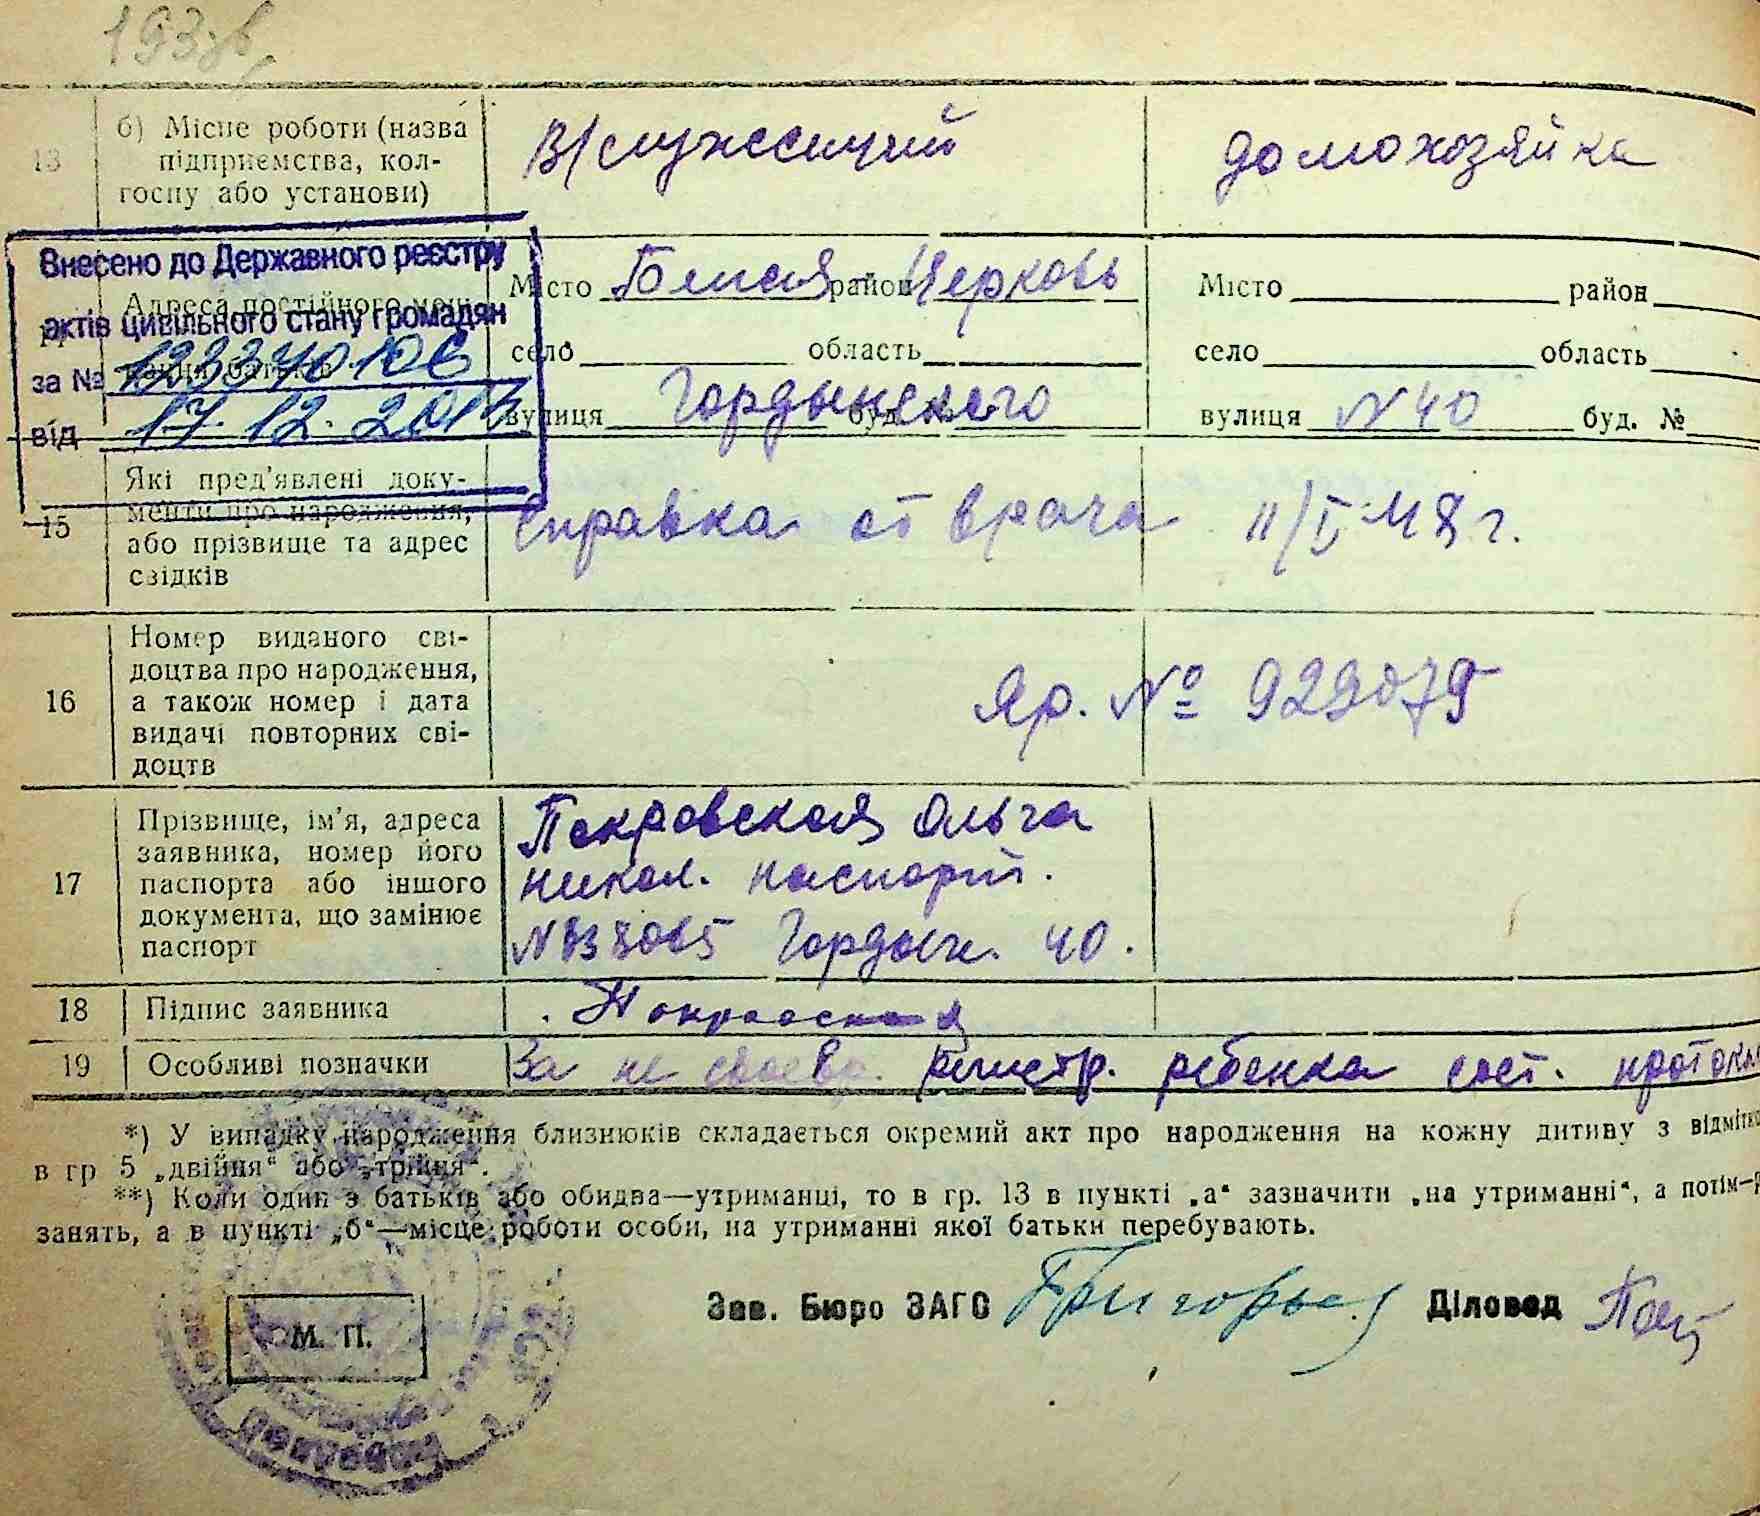 193зв
13
б) Місце роботи (назва
підприємства, кол-
госпу або установи)
В/служссичий
домохозяйка
Внесено до Державного реєстру
актів цивільного стану громадян
за № 123340106
від 17.12.2013
Адреса постійного меш-
кання батьків
Місто Белая район Церковь
село область
вулиця Гордынского буд.
Місто район
село область
вулиця №40 буд. №
15
Які пред'явлені доку-
менти про народження,
або прізвище та адрес
свідків
Справка от врача 11/V-48 г.
16
Номер виданого сві-
доцтва про народження,
а також номер і дата
видачі повторних сві-
доцтв
Яр. № 929079
17
Прізвище, ім'я, адреса
заявника, номер його
паспорта або іншого
документа, що замінює
паспорт
Покровская Ольга
никол. паспорт.
Гордын. 40.
18
Підпис заявника
Покровская
19
Особливі позначки
За не своевр. регистр. ребенка сост. протокол
*) У випадку народження близнюків складається окремий акт про народження на кожну дитину з відмітко
в гр 5 „двійня“ або „трійня“.
**) Коли один з батьків або обидва—утриманці, то в гр. 13 в пункті „а“ зазначити „на утриманні“, а потім—р
занять, а в пункті „б“—місце роботи особи, на утриманні якої батьки перебувають.
Зав. Бюро ЗАГС Григорьев Діловод
М. П.